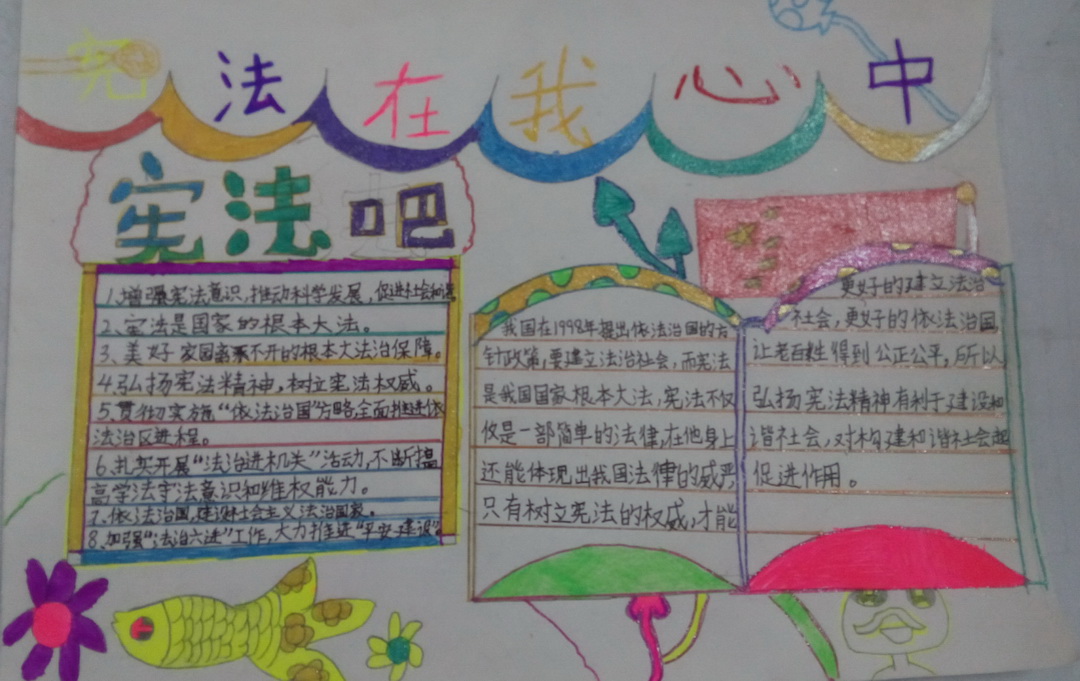 宪法在我心中
宪法吧
1、增强宪法意识,推动科学发展,促进社会和谐
2、宪法是国家的根本大法。
3、美好家园离不开的根本大法治保障。
4、弘扬宪法精神,树立宪法权威。
5、贯彻实施“依法治国”方略,全面推进依
法治区进程。
6、扎实开展“法治进机关”活动,不断提
高学法守法意识和维权能力。
7、依法治国,建设社会主义法治国家。
8、加强“法治六进”工作,大力推进“平安建设”
我国在1998年提出依法治国的方
针政策,要建立法治社会,而宪法
是我国国家根本大法,宪法不仅
仅是一部简单的法律,在他身上
还能体现出我国法律的威严
只有树立宪法的权威,才能
更好的建立法治
社会,更好的依法治国,
让老百姓得到公正公平,所以
弘扬宪法精神有利于建设和
谐社会,对构建和谐社会起
促进作用。